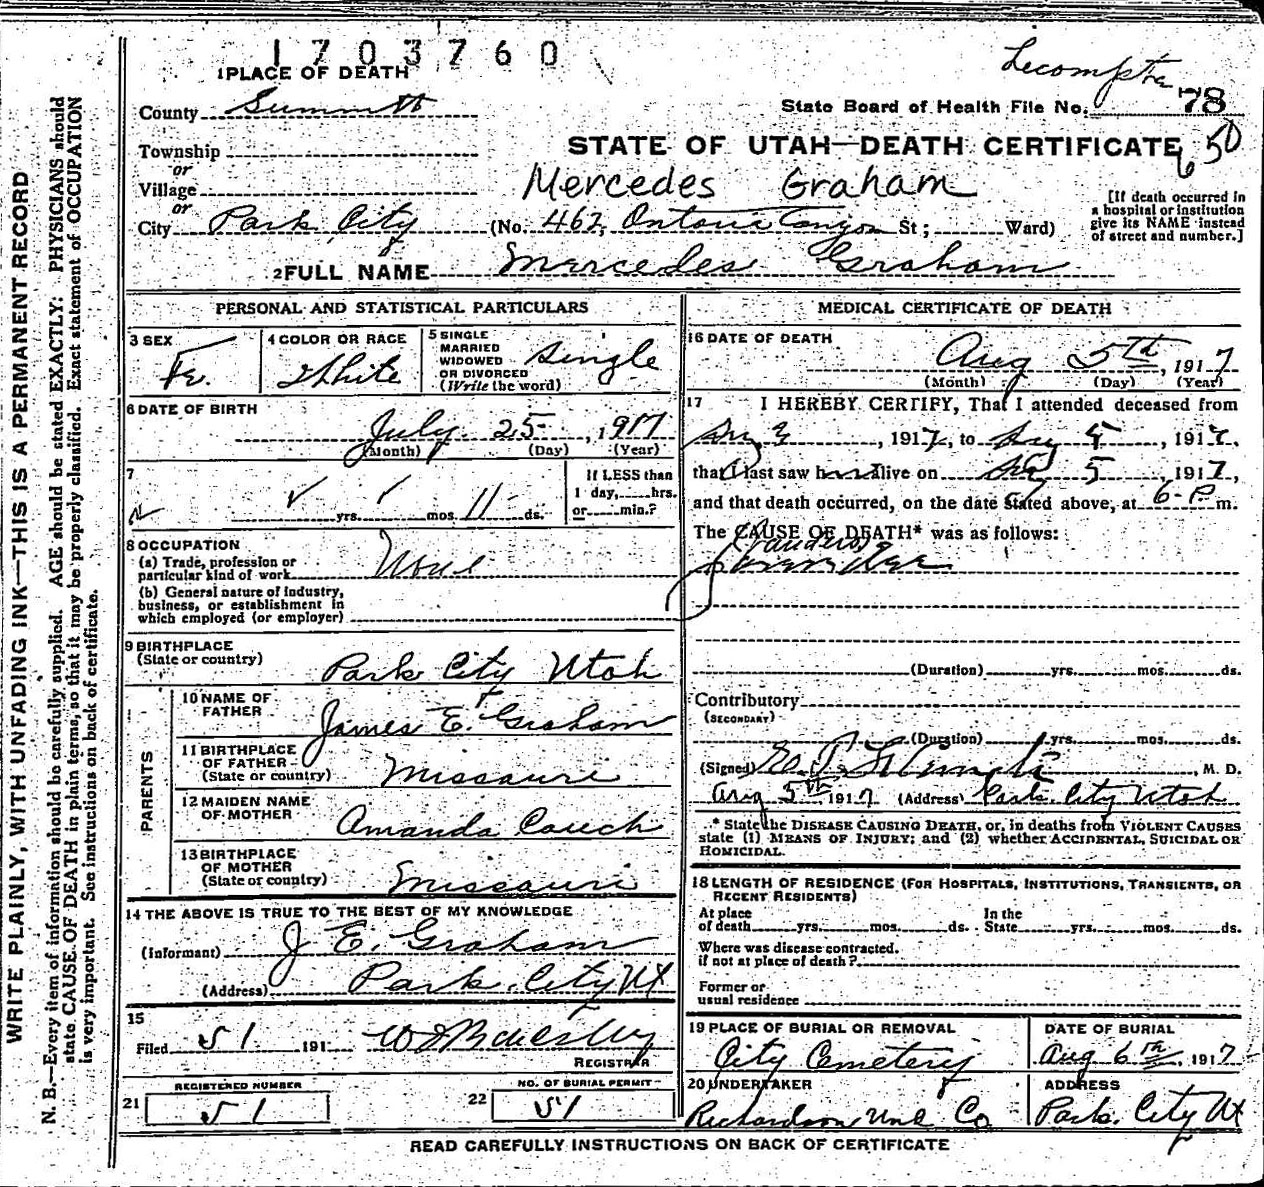 1703760
1 PLACE OF DEATH
County Summitt
Township
or
Village
or
City Park City (No. 462, Ontario Canyon St; Ward)
State Board of Health File No. 78
STATE OF UTAH—DEATH CERTIFICATE
650
Mercedes Graham
[If death occurred in
a hospital or institution
give its NAME instead
of street and number.]
2 FULL NAME Mercedes Graham
PERSONAL AND STATISTICAL PARTICULARS
3 SEX
Fe.
4 COLOR OR RACE
White
5 SINGLE
MARRIED
WIDOWED
OR DIVORCED
(Write the word)
Single
6 DATE OF BIRTH
July 25, 1917
(Month) (Day) (Year)
7
yrs. mos. 11 ds.
If LESS than
1 day, hrs.
or min.?
8 OCCUPATION
(a) Trade, profession or
particular kind of work None
(b) General nature of industry,
business, or establishment in
which employed (or employer)
9 BIRTHPLACE
(State or country) Park City Utah
PARENTS
10 NAME OF
FATHER James E. Graham
11 BIRTHPLACE
OF FATHER
(State or country) Missouri
12 MAIDEN NAME
OF MOTHER Amanda Couch
13 BIRTHPLACE
OF MOTHER
(State or country) Missouri
14 THE ABOVE IS TRUE TO THE BEST OF MY KNOWLEDGE
(Informant) J E. Graham
(Address) Park City Ut
15
Filed 51 191
REGISTRAR
REGISTERED NUMBER
21 51
NO. OF BURIAL PERMIT
22 51
MEDICAL CERTIFICATE OF DEATH
16 DATE OF DEATH
Aug 5th, 1917
(Month) (Day) (Year)
17 I HEREBY CERTIFY, That I attended deceased from
Aug 3, 1917, to Aug 5, 1917,
that I last saw h alive on Aug 5, 1917,
and that death occurred, on the date stated above, at 6-P m.
The CAUSE OF DEATH* was as follows:
(Duration) yrs. mos. ds.
Contributory
(SECONDARY)
(Duration) yrs. mos. ds.
(Signed) , M. D.
Aug 5th 1917 (Address) Park City Utah
* State the DISEASE CAUSING DEATH, or, in deaths from VIOLENT CAUSES
state (1) MEANS OF INJURY; and (2) whether ACCIDENTAL, SUICIDAL OR
HOMICIDAL.
18 LENGTH OF RESIDENCE (FOR HOSPITALS, INSTITUTIONS, TRANSIENTS, OR
RECENT RESIDENTS)
At place
of death yrs. mos. ds.
In the
State yrs. mos. ds.
Where was disease contracted.
if not at place of death?
Former or
usual residence
19 PLACE OF BURIAL OR REMOVAL
City Cemetery
DATE OF BURIAL
Aug 6th, 1917
20 UNDERTAKER
Richardson Und Co
ADDRESS
Park City Ut
READ CAREFULLY INSTRUCTIONS ON BACK OF CERTIFICATE
WRITE PLAINLY, WITH UNFADING INK—THIS IS A PERMANENT RECORD
N. B.—Every item of information should be carefully supplied. AGE should be stated EXACTLY: PHYSICIANS should
state CAUSE OF DEATH in plain terms, so that it may be properly classified. Exact statement of OCCUPATION
is very important. See instructions on back of certificate.